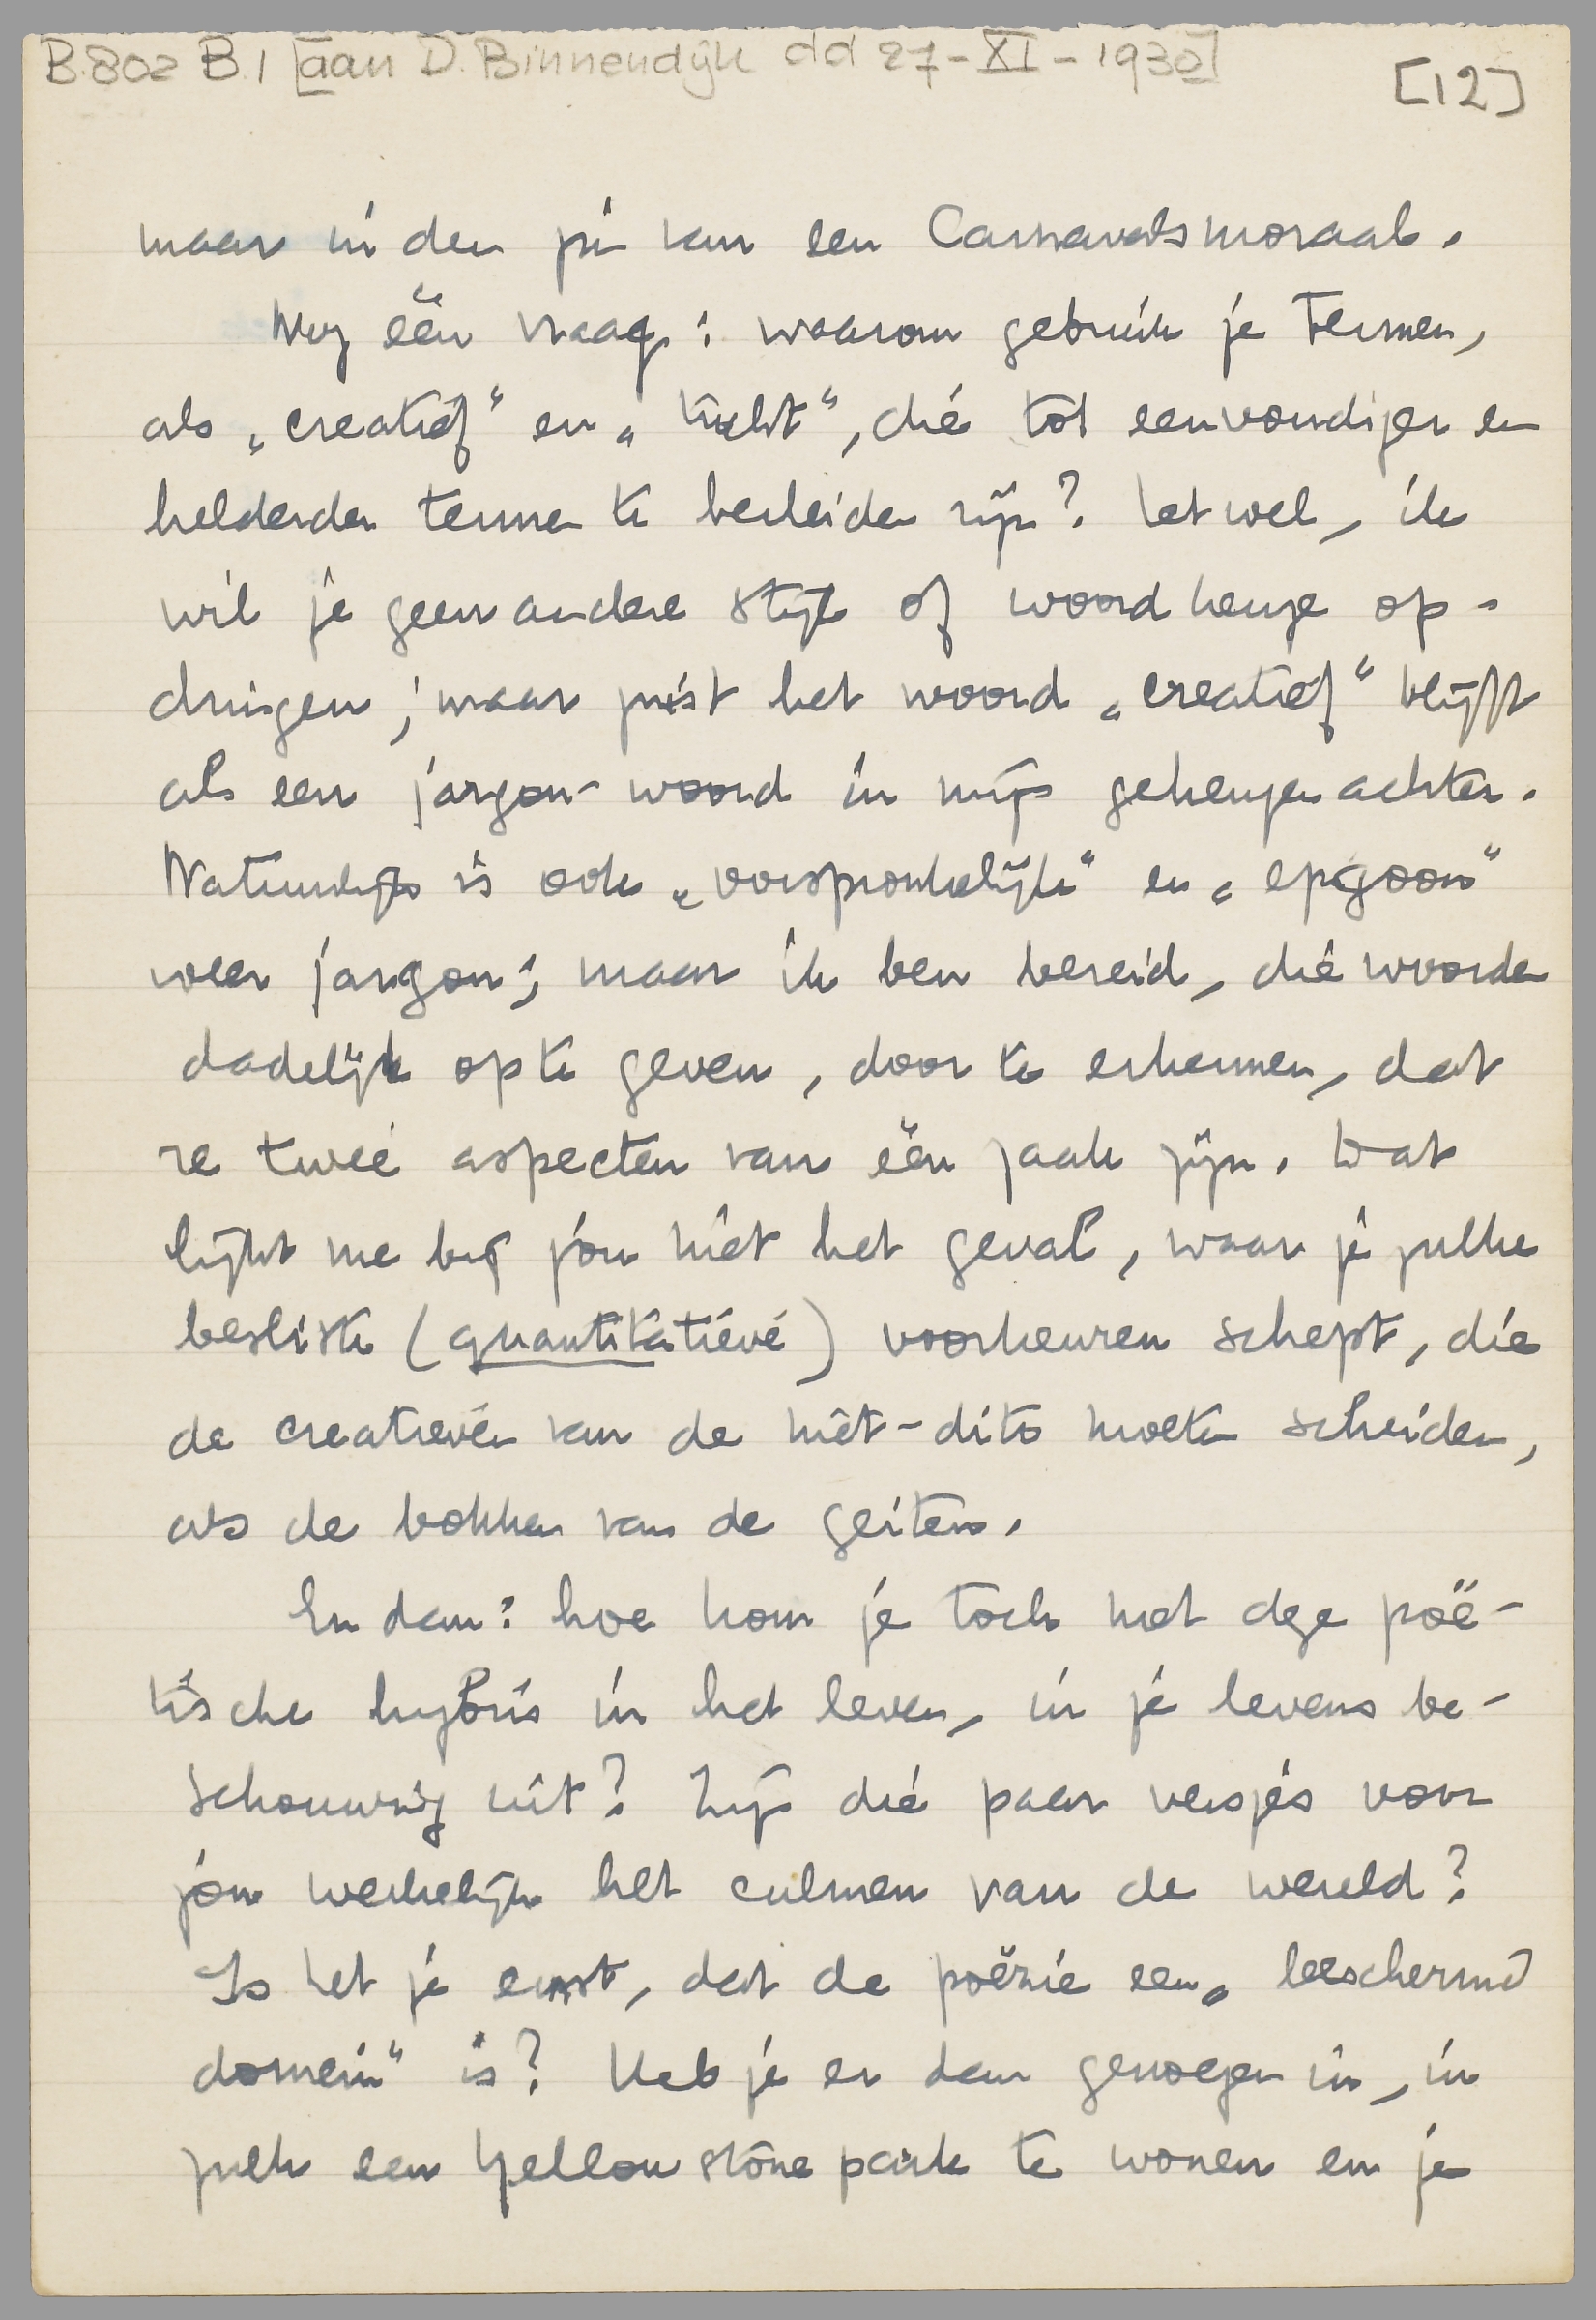 B.802 B.1 [aan D. Binnendijk dd 27-XI-1930]
[12]
maar in den zin van een Carnavalsmoraal.
Nog één vraag: waarom gebruik je termen,
als „creatief” en „tucht”, die tot eenvoudiger en
helderder termen te herleiden zijn? Let wel, ik
wil je geen andere stijl of woordkeuze op-
dringen; maar juist het woord „creatief” blijft
als een jargon-woord in mijn geheugen achter.
Natuurlijk is ook „oorspronkelijk” en „epigoon”
weer jargon; maar ik ben bereid, die woorden
dadelijk op te geven, door te erkennen, dat
ze twee aspecten van één zaak zijn. Dat
lijkt me bij jou niet het geval, waar je zulke
besliste (quantitatieve) voorkeuren schept, die
de creatieven van de niet-dito moeten scheiden,
als de bokken van de geiten.
En dan: hoe kom je toch met deze poë-
tische hybris in het leven, in je levensbe-
schouwing uit? Zijn die paar versjes voor
jou werkelijk het culmen van de wereld?
Is het je ernst, dat de poëzie een „beschermd
domein” is? Heb je er dan genoegen in, in
zulk een Yellowstone park te wonen en je